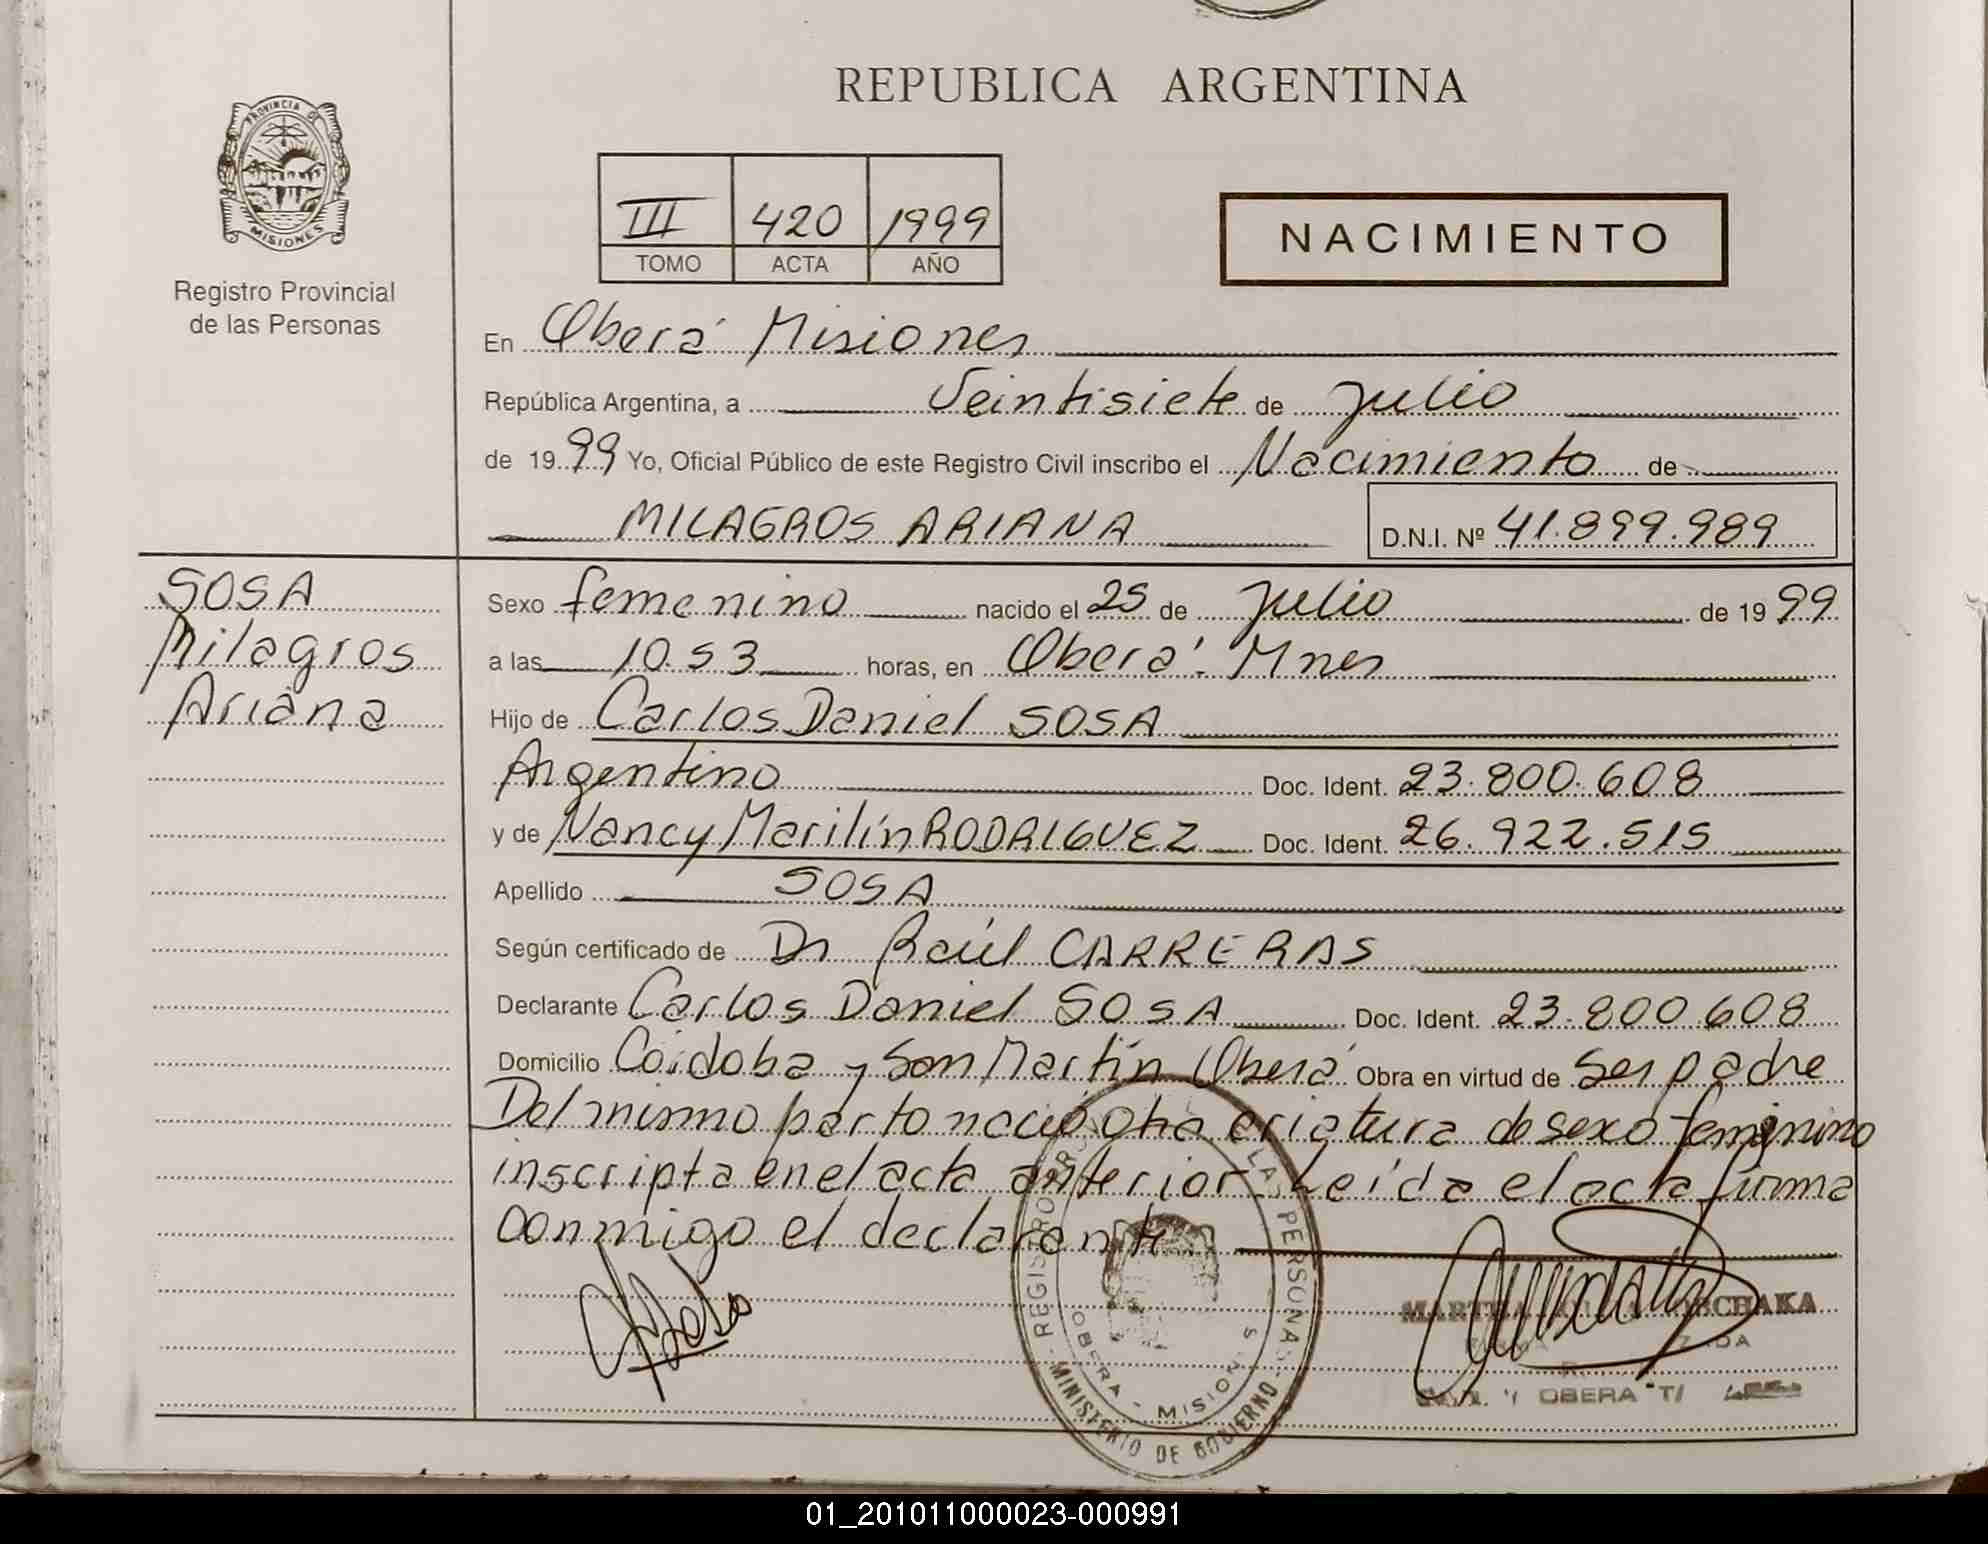 REPUBLICA ARGENTINA
PROVINCIA DE
MISIONES
Registro Provincial
de las Personas
III 420 1999
TOMO ACTA AÑO
NACIMIENTO
En Oberá Misiones
República Argentina, a Veintisiete de Julio
de 1999 Yo, Oficial Público de este Registro Civil inscribo el Nacimiento de
MILAGROS ARIANA D.N.I. Nº 41.899.989
SOSA
Milagros
Ariana
Sexo femenino nacido el 25 de Julio de 1999
a las 10.53 horas, en Oberá. Mnes
Hijo de Carlos Daniel SOSA
Argentino Doc. Ident. 23.800.608
y de Nancy Marilín RODRIGUEZ Doc. Ident. 26.922.515
Apellido SOSA
Según certificado de Dr Raúl CARRERAS
Declarante Carlos Daniel SOSA Doc. Ident. 23.800 608
Domicilio Córdoba y San Martín Oberá Obra en virtud de Ser padre
Del mismo parto nació otra criatura de sexo femenino
inscripta en el acta anterior. Leída el acta firma
conmigo el declarante
REGISTRO LAS PERSONAS
OBERA - MISIONES
MINISTERIO DE GOBIERNO
OBERA
01_201011000023-000991